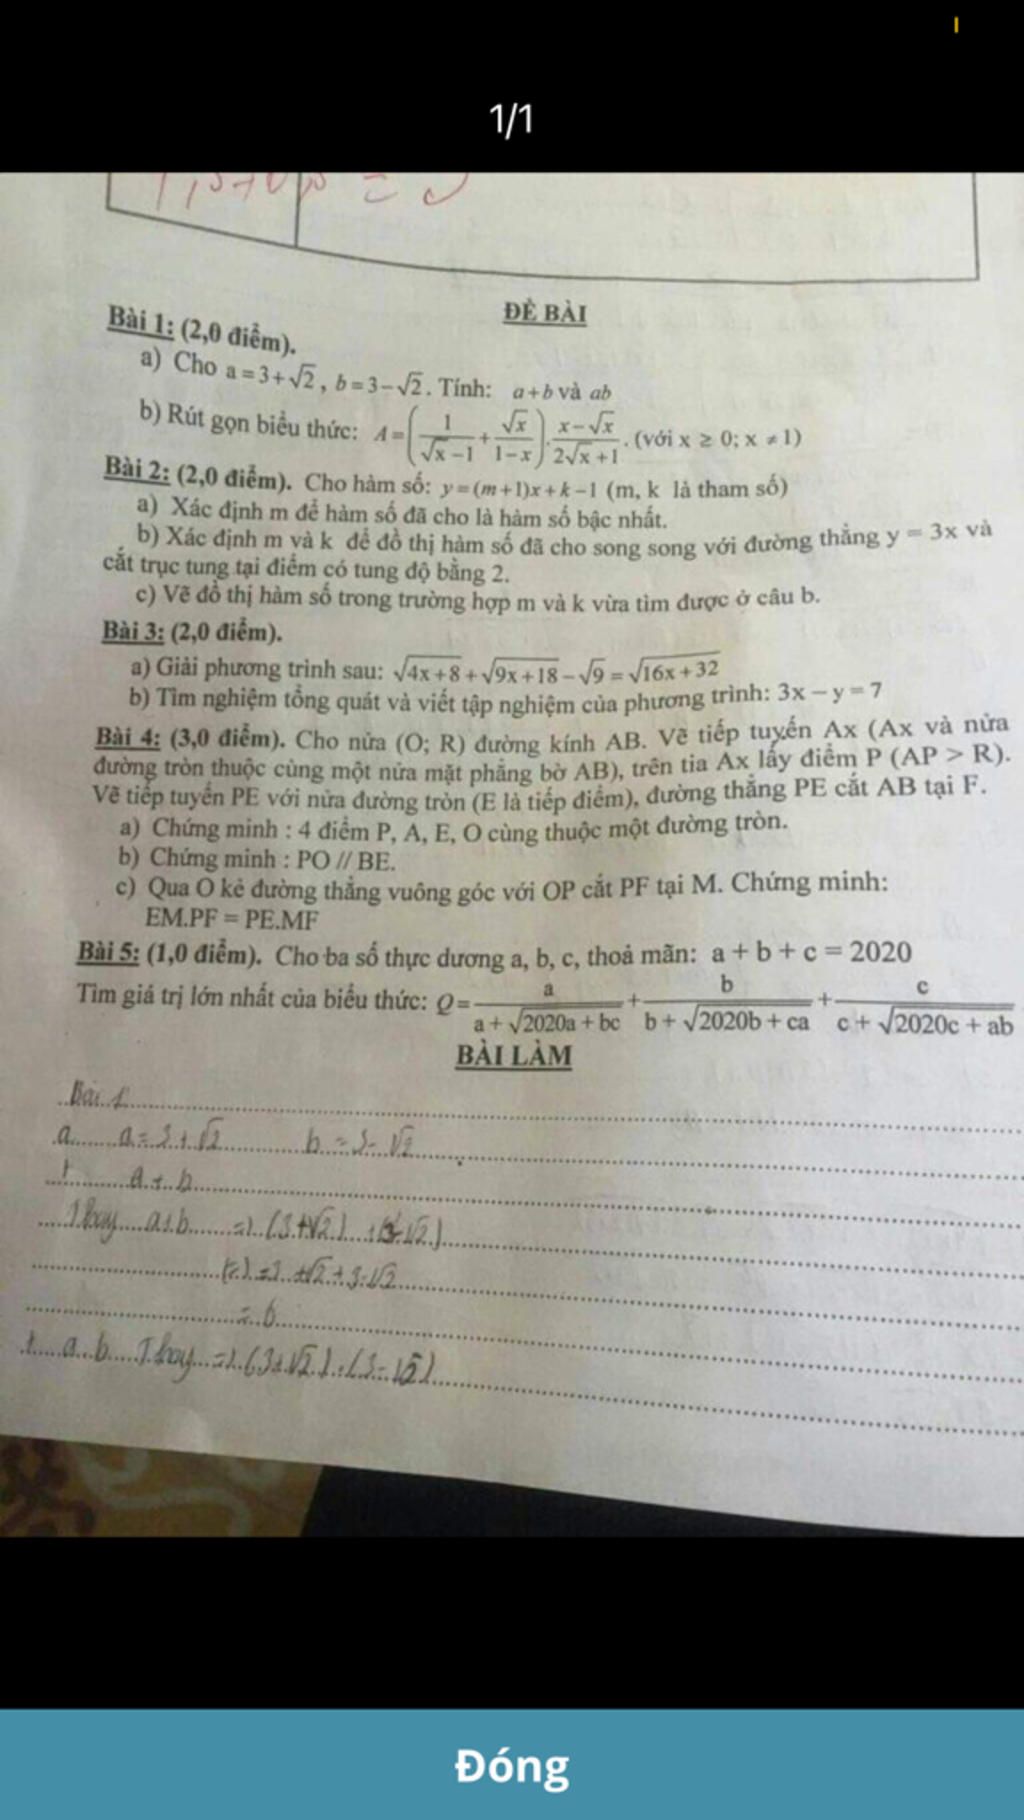 1/1
ĐỀ BÀI
Bài 1: (2,0 điểm).
a) Cho a = 3+√2, b = 3−√2. Tính: a+b và ab
b) Rút gọn biểu thức: A = (1/(√x −1) + √x/(1−x)) . (x−√x)/(2√x +1). (với x ≥ 0; x ≠ 1)
Bài 2: (2,0 điểm). Cho hàm số: y = (m+1)x + k −1 (m, k là tham số)
a) Xác định m để hàm số đã cho là hàm số bậc nhất.
b) Xác định m và k để đồ thị hàm số đã cho song song với đường thẳng y = 3x và
cắt trục tung tại điểm có tung độ bằng 2.
c) Vẽ đồ thị hàm số trong trường hợp m và k vừa tìm được ở câu b.
Bài 3: (2,0 điểm).
a) Giải phương trình sau: √(4x+8) + √(9x+18) − √9 = √(16x+32)
b) Tìm nghiệm tổng quát và viết tập nghiệm của phương trình: 3x − y = 7
Bài 4: (3,0 điểm). Cho nửa (O; R) đường kính AB. Vẽ tiếp tuyến Ax (Ax và nửa
đường tròn thuộc cùng một nửa mặt phẳng bờ AB), trên tia Ax lấy điểm P (AP > R).
Vẽ tiếp tuyến PE với nửa đường tròn (E là tiếp điểm), đường thẳng PE cắt AB tại F.
a) Chứng minh : 4 điểm P, A, E, O cùng thuộc một đường tròn.
b) Chứng minh : PO // BE.
c) Qua O kẻ đường thẳng vuông góc với OP cắt PF tại M. Chứng minh:
EM.PF = PE.MF
Bài 5: (1,0 điểm). Cho ba số thực dương a, b, c, thoả mãn: a + b + c = 2020
Tìm giá trị lớn nhất của biểu thức: Q = a/(a + √(2020a + bc)) + b/(b + √(2020b + ca)) + c/(c + √(2020c + ab))
BÀI LÀM
Bài 1
a a = 3 + √2 b = 3 - √2
+ a + b
Thay a+b => (3+√2) + (3-√2)
= 3 + √2 + 3 - √2
= 6
+ a.b Thay => (3+√2) . (3-√2)
Đóng